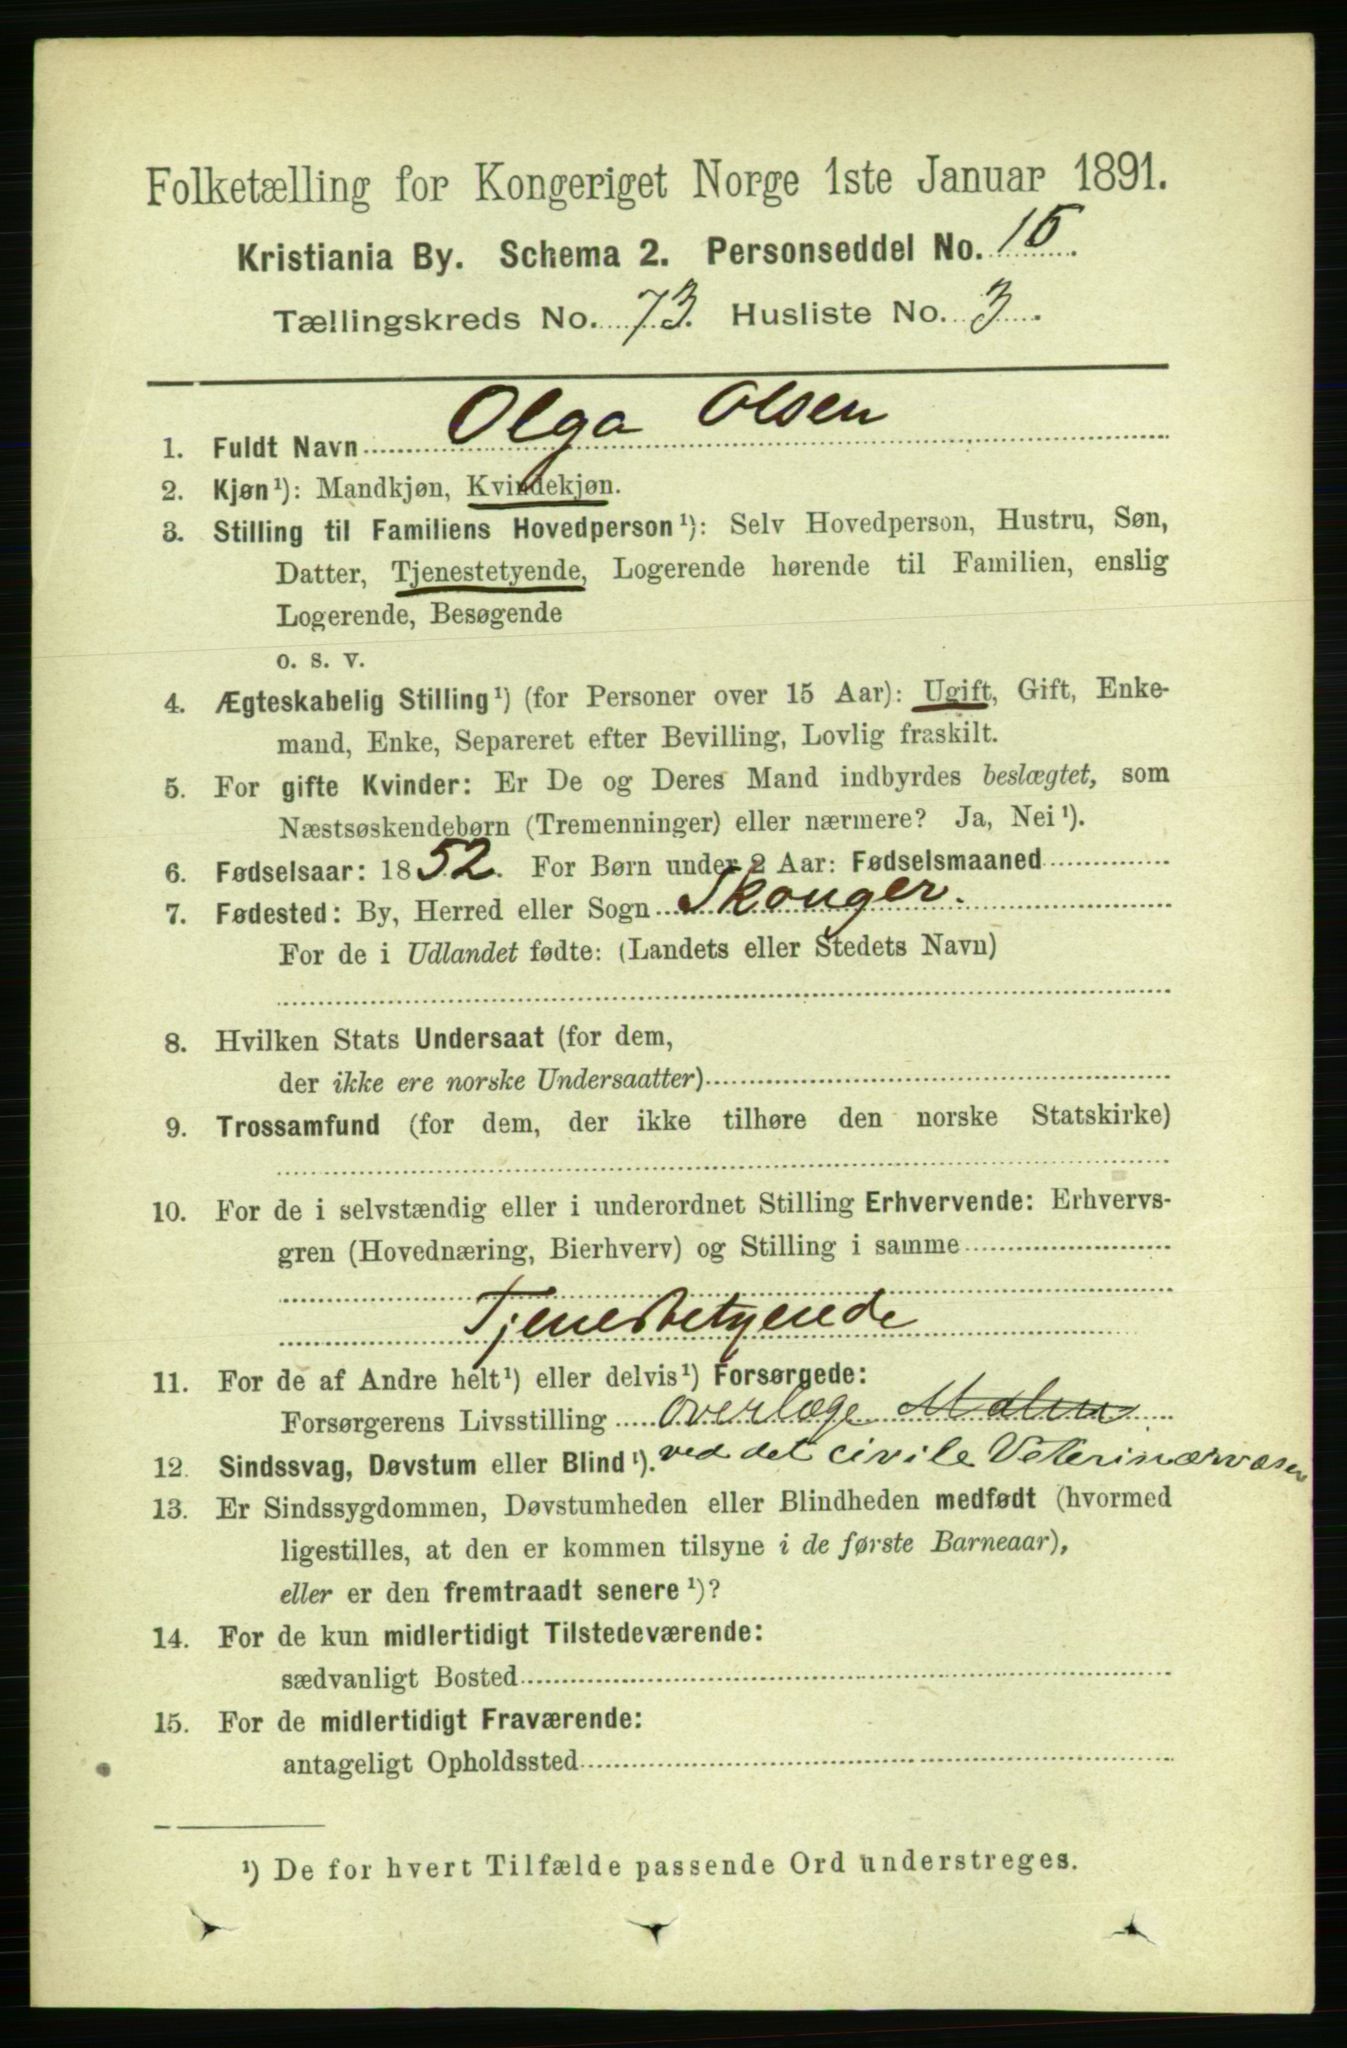 Folketælling for Kongeriget Norge 1ste Januar 1891.
Kristiania By. Schema 2. Personseddel No. 15.
Tællingskreds No. 73. Husliste No. 3.
1. Fuldt Navn Olga Olsen
2. Kjøn¹): Mandkjøn, Kvindekjøn.
3. Stilling til Familiens Hovedperson¹): Selv Hovedperson, Hustru, Søn,
Datter, Tjenestetyende, Logerende hørende til Familien, enslig
Logerende, Besøgende
o. s. v.
4. Ægteskabelig Stilling¹) (for Personer over 15 Aar): Ugift, Gift, Enke-
mand, Enke, Separeret efter Bevilling, Lovlig fraskilt.
5. For gifte Kvinder: Er De og Deres Mand indbyrdes beslægtet, som
Næstsøskendebørn (Tremenninger) eller nærmere? Ja, Nei¹).
6. Fødselsaar: 1852. For Børn under 2 Aar: Fødselsmaaned
7. Fødested: By, Herred eller Sogn Skouger.
For de i Udlandet fødte: (Landets eller Stedets Navn)
8. Hvilken Stats Undersaat (for dem,
der ikke ere norske Undersaatter)
9. Trossamfund (for dem, der ikke tilhøre den norske Statskirke)
10. For de i selvstændig eller i underordnet Stilling Erhvervende: Erhvervs-
gren (Hovednæring, Bierhverv) og Stilling i samme
Tjenestetyende
11. For de af Andre helt¹) eller delvis¹) Forsørgede:
Forsørgerens Livsstilling Overlæge
12. Sindssvag, Døvstum eller Blind¹). ved det civile Veterinærvæsen
13. Er Sindssygdommen, Døvstumheden eller Blindheden medfødt (hvormed
ligestilles, at den er kommen tilsyne i de første Barneaar),
eller er den fremtraadt senere¹)?
14. For de kun midlertidigt Tilstedeværende:
sædvanligt Bosted
15. For de midlertidigt Fraværende:
antageligt Opholdssted
¹) De for hvert Tilfælde passende Ord understreges.